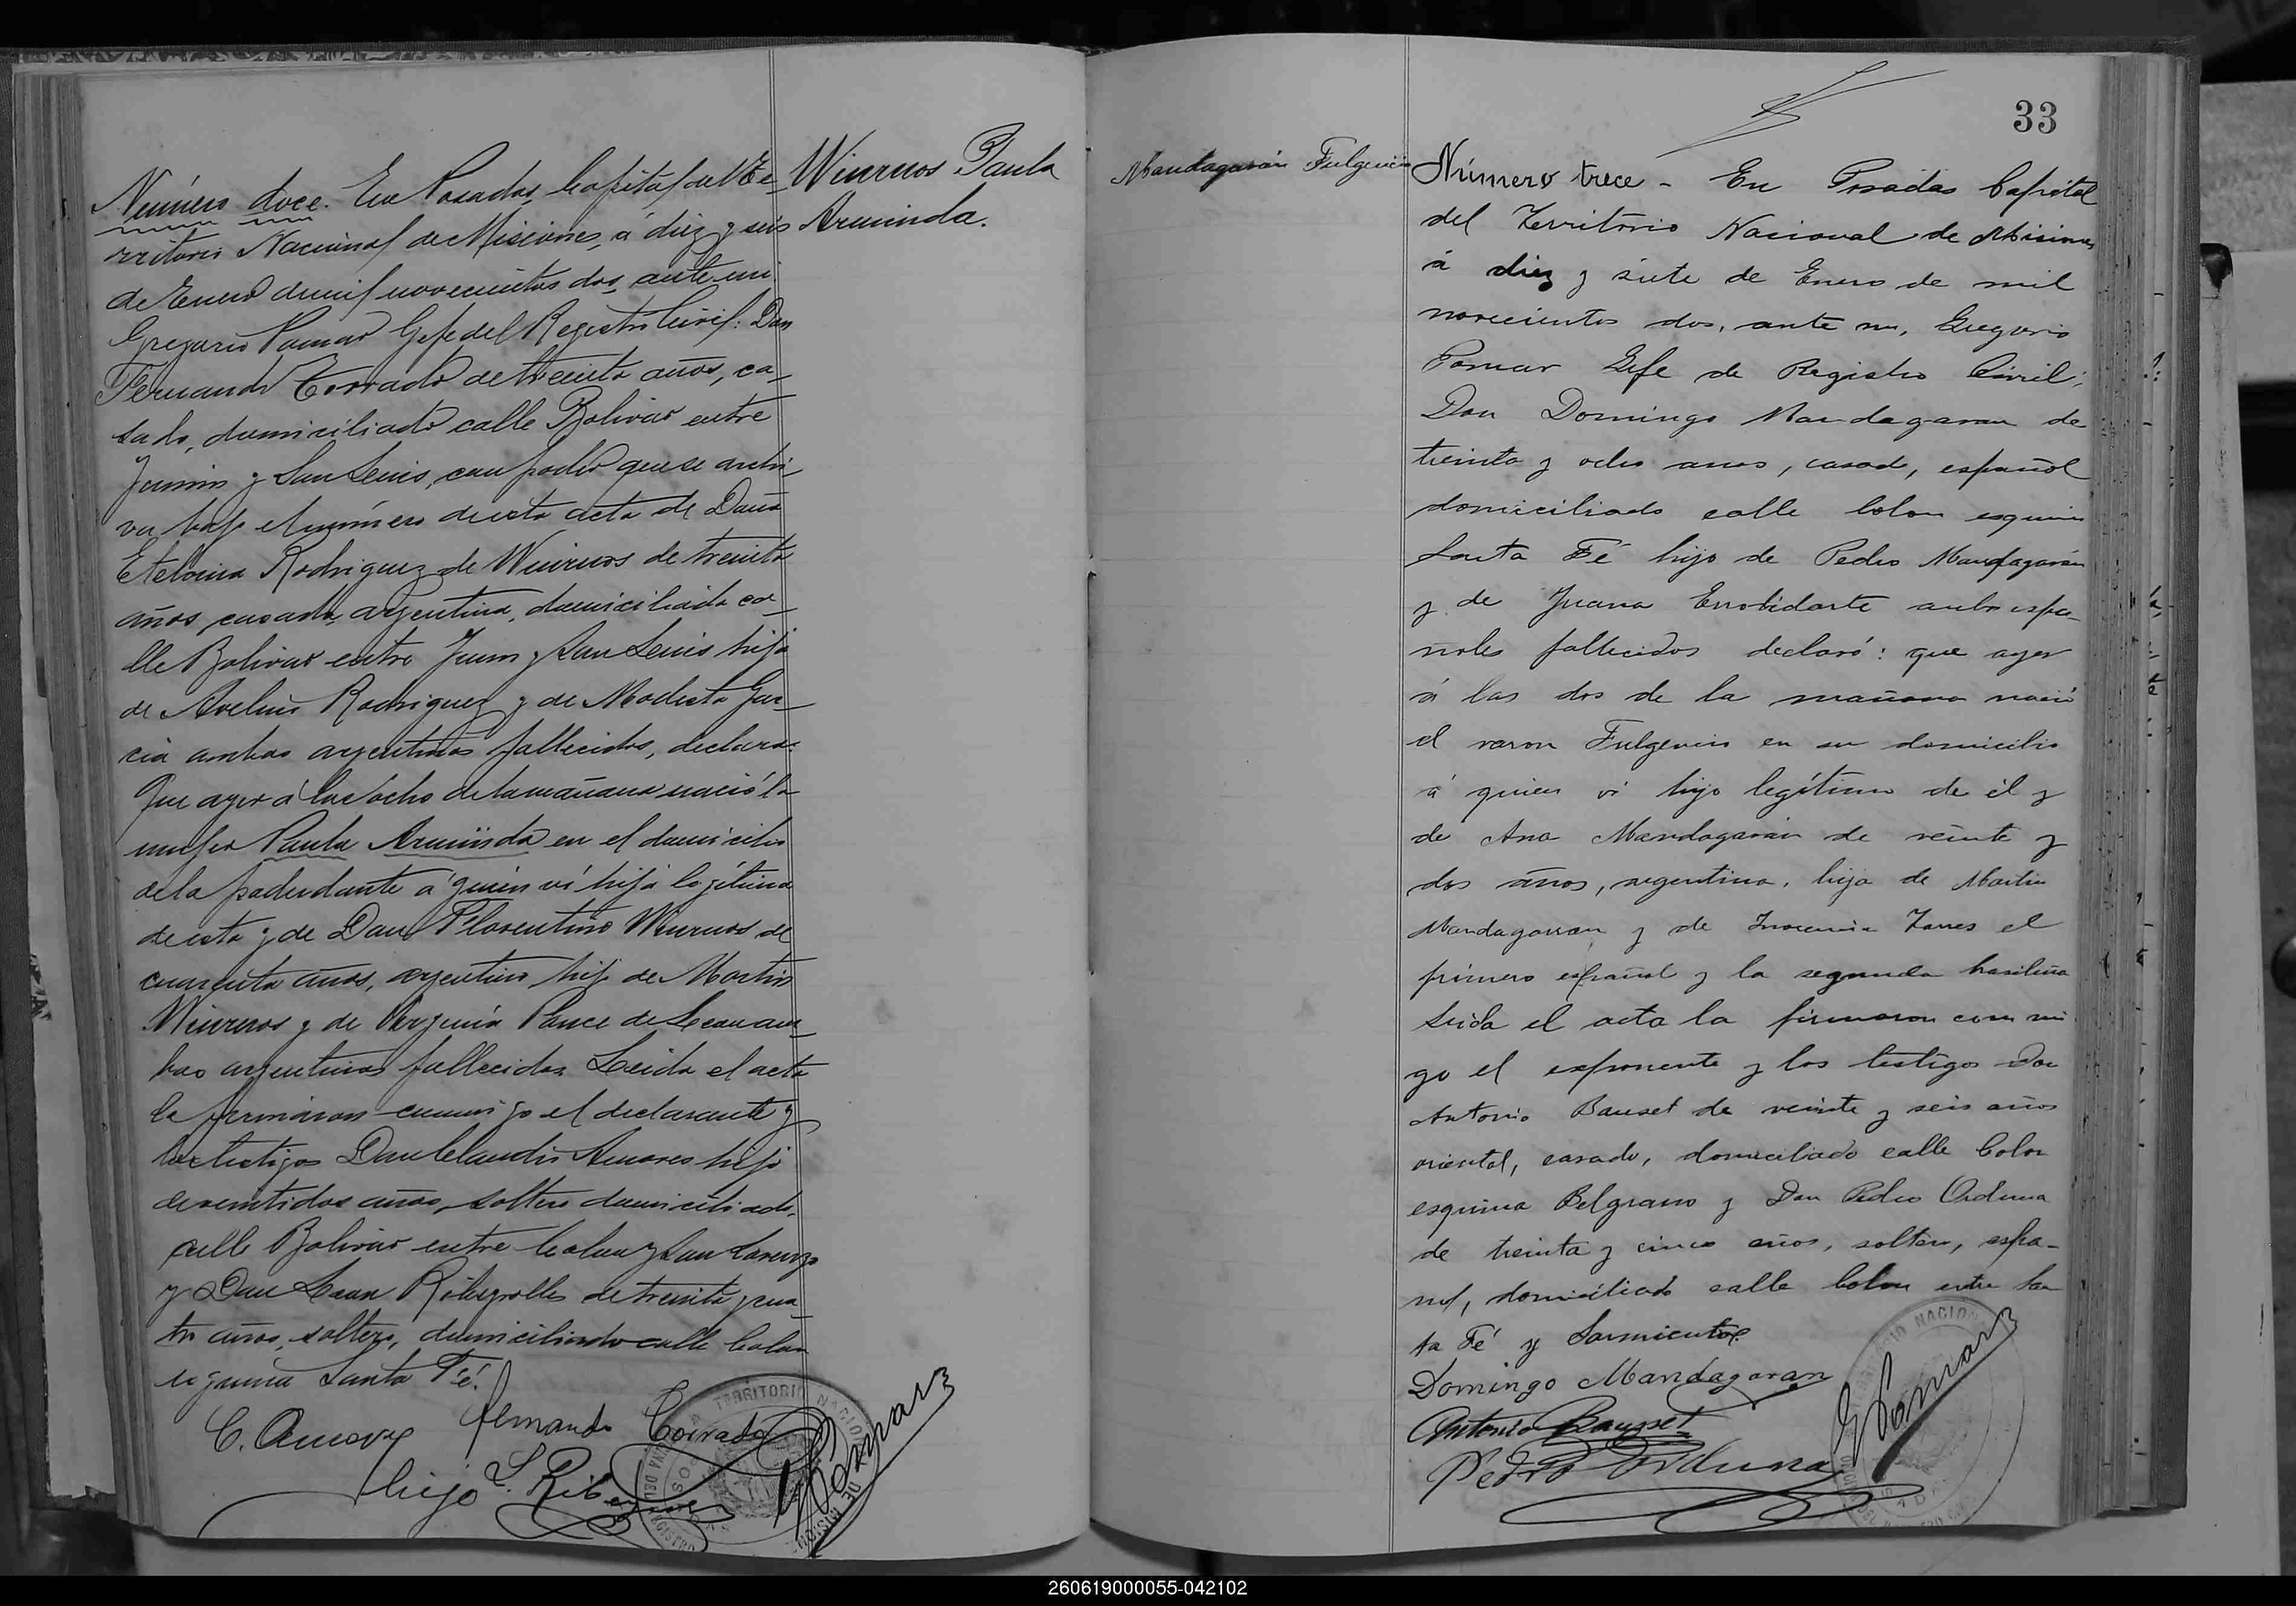 Número doce. En Posadas, Capital del Te-
rritorio Nacional de Misiones, á diez y seis
de Enero de mil novecientos dos, ante mi
Gregorio Pomar Gefe del Registro Civil: Don
Fernando Corrado de treinta años, ca-
sado, domiciliado calle Bolivar entre
Junin y San Luis, con poder que se archi-
va bajo el número de esta acta de Doña
Etelvina Rodriguez de Winruos de treinta
años, casada, argentina, domiciliada ca-
lle Bolivar entre Junin y San Luis hija
de Avelino Rodriguez y de Modesta Gar-
cia ambos argentinos fallecidos, declara:
Que ayer á las ocho de la mañana nació la
mujer Paula Arminda en el domicilio
de la poderdante á quien ví hija legítima
de esta y de Don Florentino Winruos de
cuarenta años, argentino hijo de Martin
Winruos y de Virginia Ponce de Leon am-
bos argentinos fallecidos. Leida el acta
la firmaron conmigo el declarante y
los testigos Don Claudio Amores hijo
de veintidos años, soltero domiciliado
calle Bolivar entre Colon y San Lorenzo
y Don Leon Ribeyrolles de treinta y cua-
tro años, soltero, domiciliado calle Colon
esquina Santa Fé.
C. Amores Fernando Corrado
hijo L. Ribeyrolles GPomar
Winruos Paula
Arminda.
33
Mandagarán Fulgencio
Número trece - En Posadas Capital
del Territorio Nacional de Misiones
á diez y siete de Enero de mil
novecientos dos, ante mi, Gregorio
Pomar Gefe de Registro Civil;
Don Domingo Mandagaran de
treinta y ocho anos, casado, español
domiciliado calle Colon esquina
Santa Fé hijo de Pedro Mandagarán
y de Juana Errobidarte ambos espa-
ñoles fallecidos declaró: que ayer
á las dos de la mañana nació
el varon Fulgencio en su domicilio
á quien ví hijo legítimo de él y
de Ana Mandagarán de veinte y
dos años, argentina, hija de Martin
Mandagarran y de Inocencia Torres el
primero español y la segunda brasileña
Leida el acta la firmaron con mi
go el exponente y los testigos Don
Antonio Bauset de veinte y seis años
oriental, casado, domiciliado calle Colon
esquina Belgrano y Don Pedro Orduna
de treinta y cinco años, soltero, espa-
ñol, domiciliado calle Colon entre San
ta Fé y Sarmiento
Domingo Mandagaran
Antonio Bausset
Pedro Orduna
GPomar
260619000055-042102